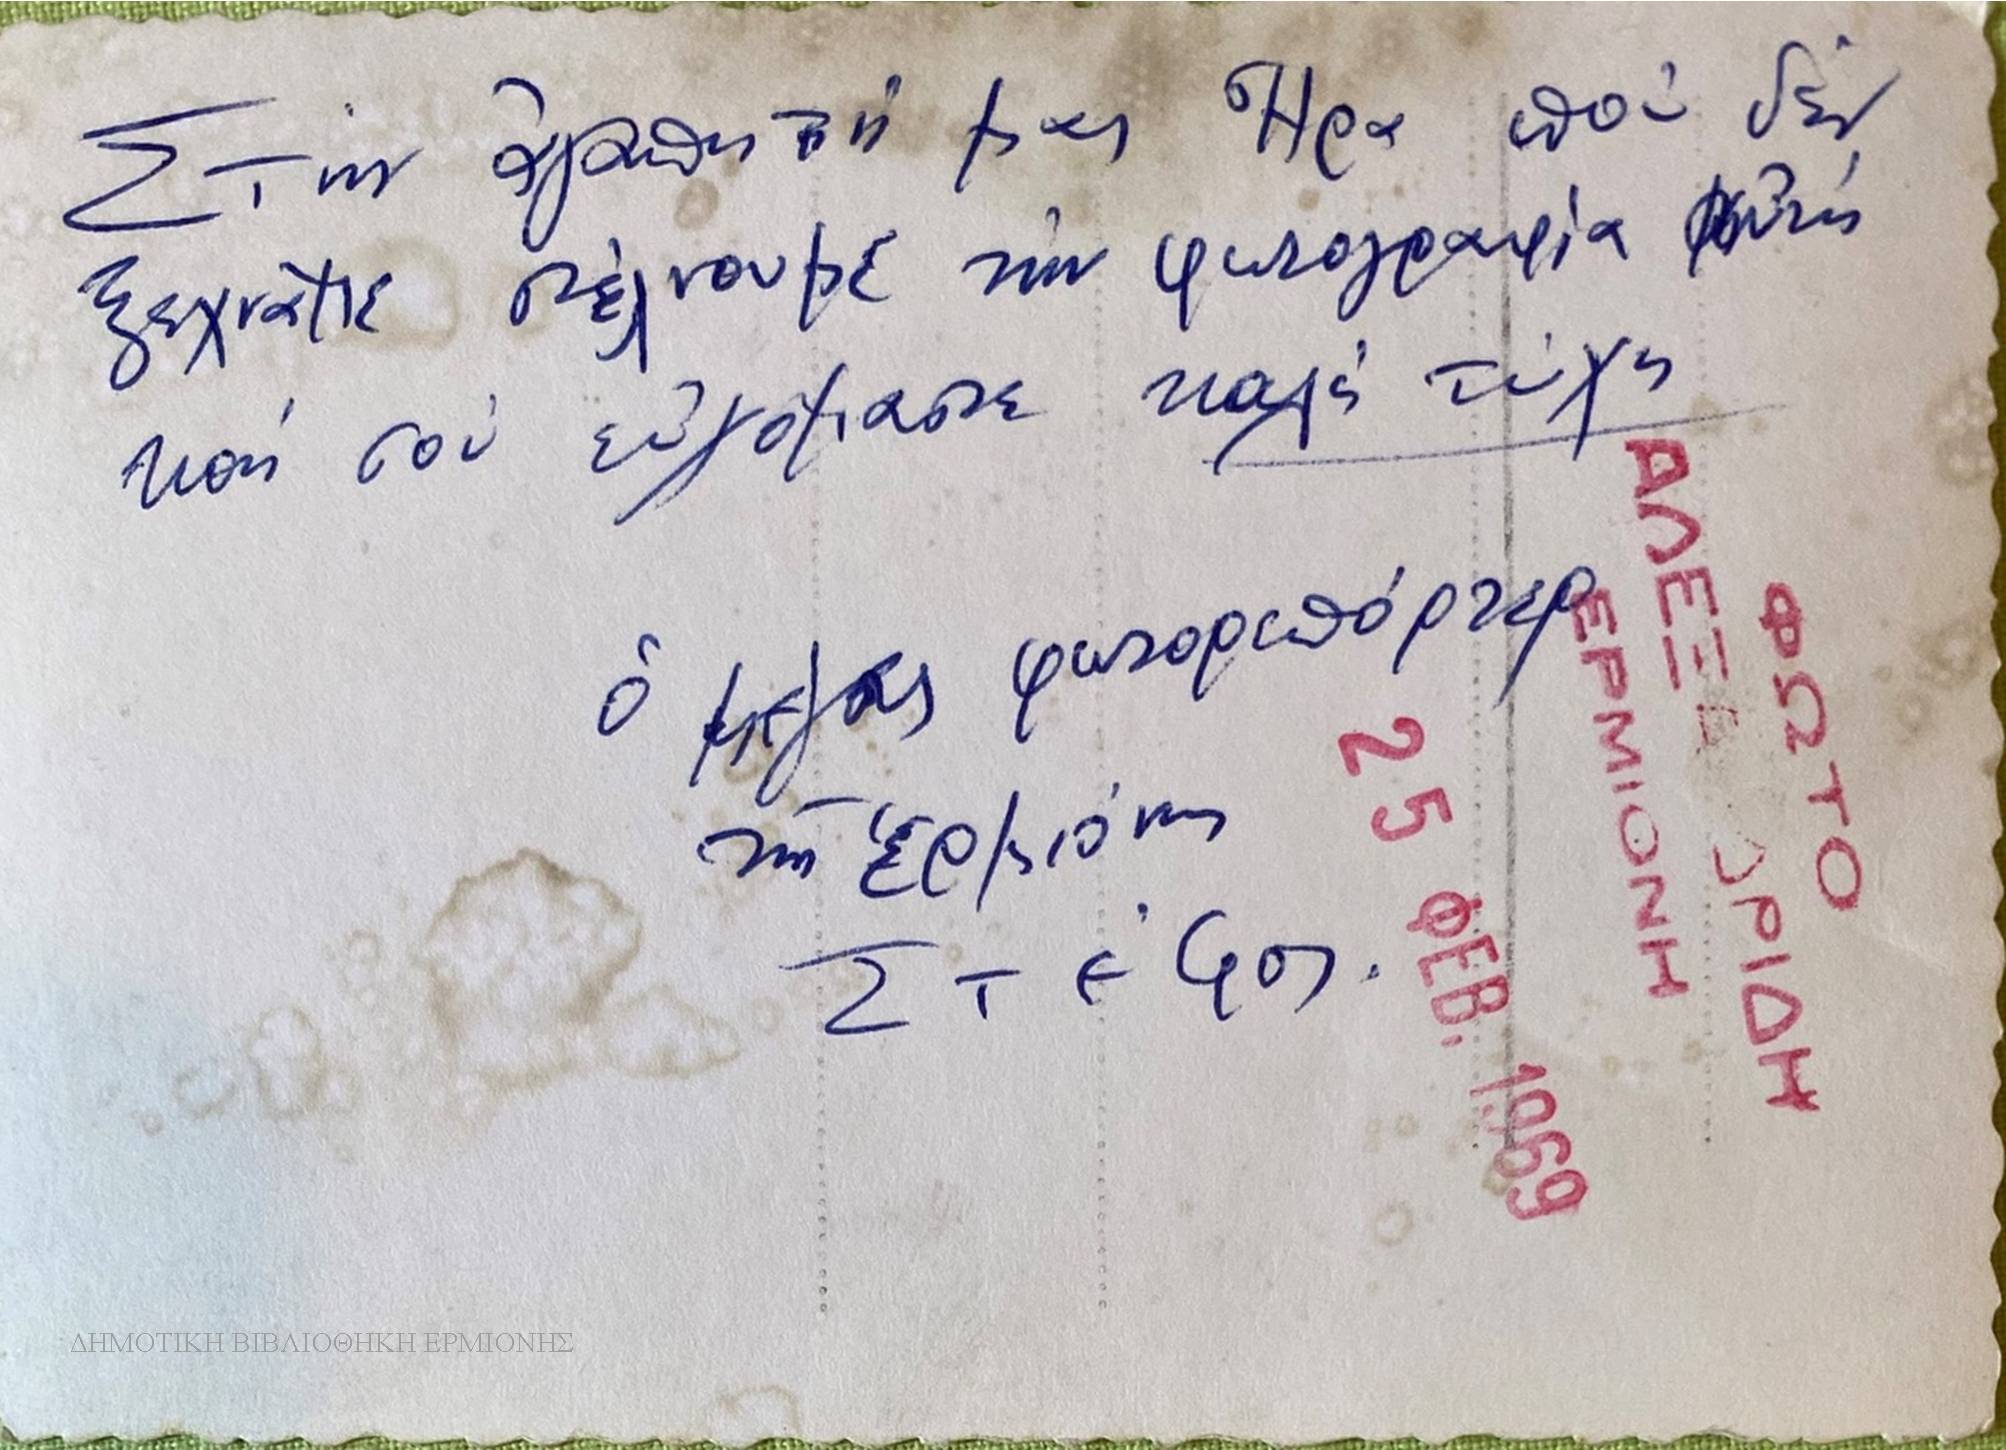 Στὴν ἀγαπητή μας Ἥρα ποὺ δὲν
ξεχνᾶτε στέλνουμε τὴν φωτογραφία αὐτή
καὶ σοῦ εὐχόμαστε καλή τύχη
ὁ μέγας φωτορεπόρτερ
τῆς Ἑρμιόνης
Στέφος.
ΦΩΤΟ
ΑΛΕΞ ΟΡΙΔΗ
ΕΡΜΙΟΝΗ
25 ΦΕΒ. 1969
ΔΗΜΟΤΙΚΗ ΒΙΒΛΙΟΘΗΚΗ ΕΡΜΙΟΝΗΣ